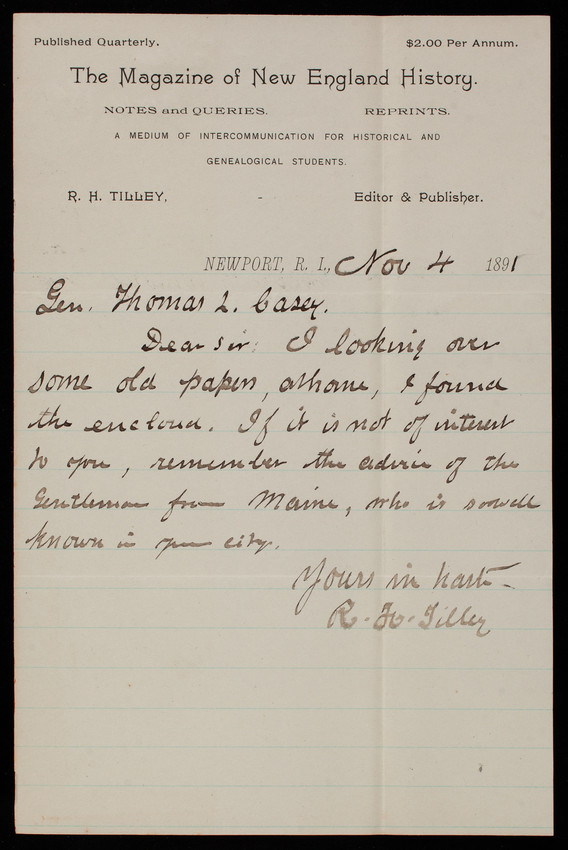 Published Quarterly. $2.00 Per Annum.
The Magazine of New England History.
NOTES and QUERIES. REPRINTS.
A MEDIUM OF INTERCOMMUNICATION FOR HISTORICAL AND
GENEALOGICAL STUDENTS.
R. H. TILLEY, - Editor & Publisher.
NEWPORT, R. I., Nov 4 1891
Gen. Thomas L. Casey.
Dear Sir: I looking over
some old papers, at home, I found
the enclosed. If it is not of interest
to you, remember the advice of the
Gentleman from Maine, who is so well
known in your city.
Yours in haste
R. H. Tilley